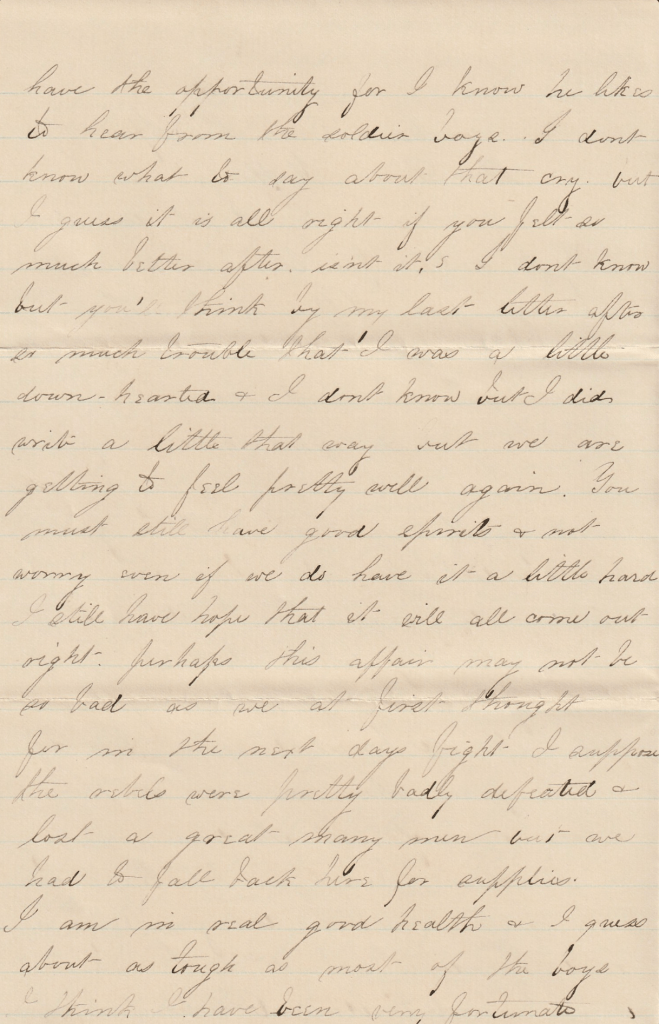 have the opportunity for I know he likes
to hear from the soldier boys. I dont
know what to say about that cry. but
I guess it is all right if you felt so
much better after. isnt it? I dont know
but you'll think by my last letter after
so much trouble that I was a little
down-hearted & I dont know but I did
write a little that way but we are
getting to feel pretty well again. You
must still have good spirits & not
worry even if we do have it a little hard
I still have hope that it will all come out
right. perhaps this affair may not be
so bad as we at first thought
for in the next days fight I suppose
the rebels were pretty badly defeated &
lost a great many men but we
had to fall back here for supplies.
I am in real good health & I guess
about as tough as most of the boys
I think I have been very fortunate